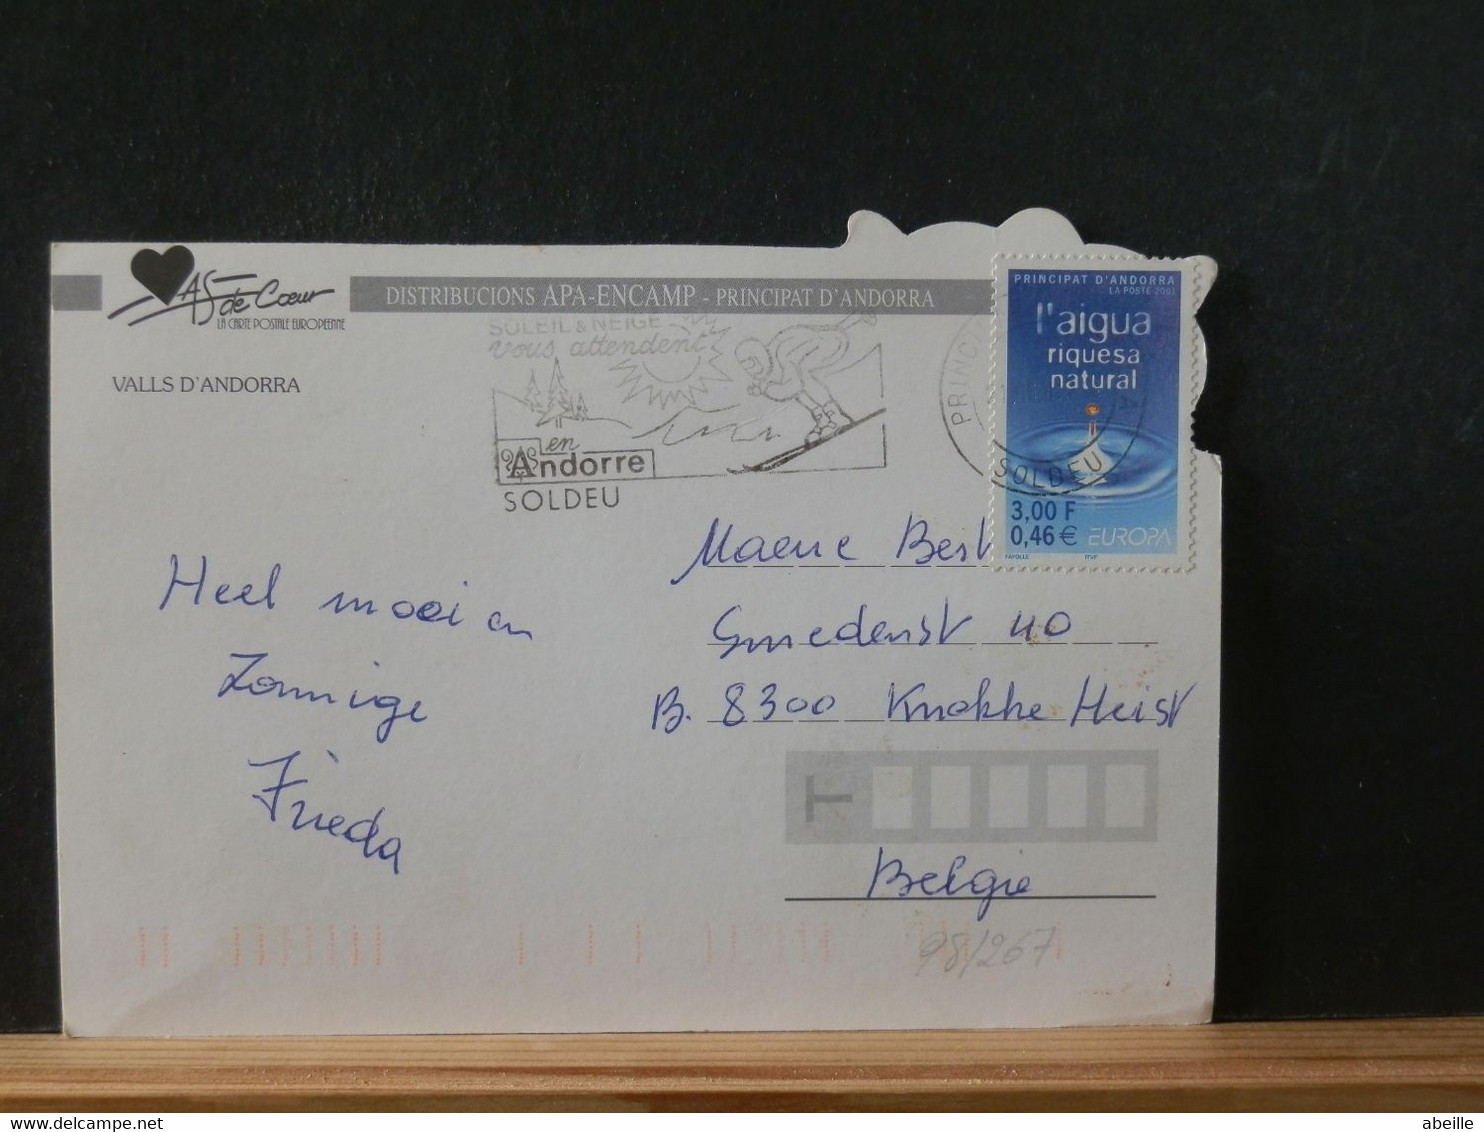 AS de Cœur
LA CARTE POSTALE EUROPEENNE
DISTRIBUCIONS APA-ENCAMP - PRINCIPAT D'ANDORRA
VALLS D'ANDORRA
SOLEIL & NEIGE
vous attendent
en
Andorre
SOLDEU
PRINCI
SOLDEU
PRINCIPAT D'ANDORRA
LA POSTE 2001
l'aigua
riquesa
natural
3,00 F
0,46 €
EUROPA
FAYOLLE ITVF
Heel mooi en
Zonnige
Frieda
Maene Best
Smedenst 40
B. 8300 Knokke Heist
T
Belgie
98/267
abeille